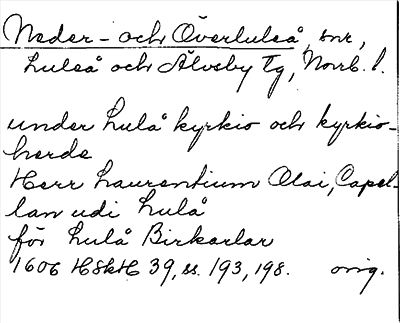 Neder- och Överluleå, snr,
Luleå och Älvsby Tg, Norrb. l.
under Lulå kyrkio och kyrkio-
herde
Herr Laurentium Olai, Capel-
lan udi Lulå
för Lulå Birkarlar
1606 HSkH 39, ss. 193, 198. orig.